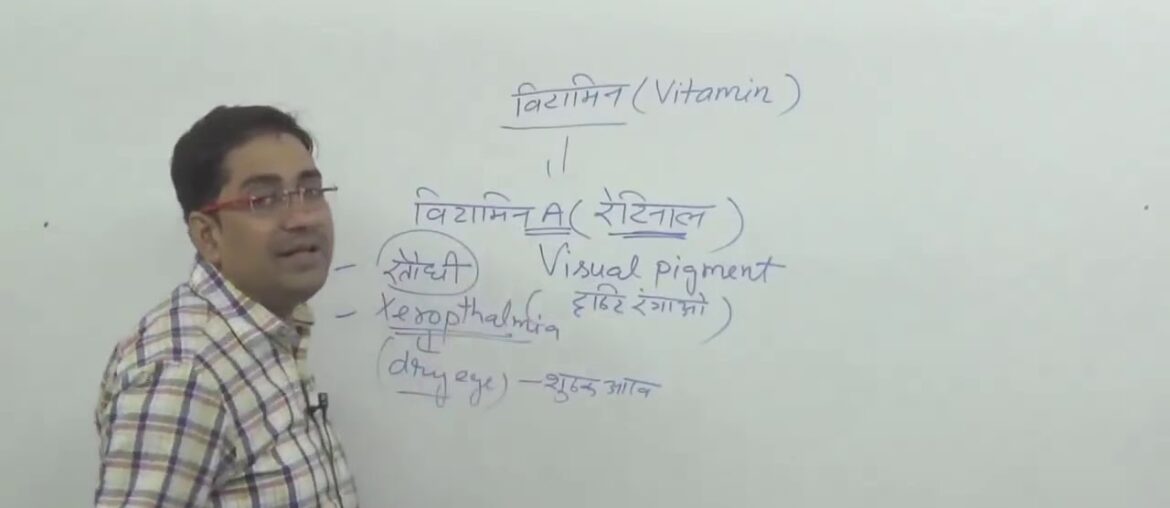 विटामिन (Vitamin)
विटामिन A (रेटिनाल)
- रतौंधी Visual pigment
- Xeropthalmia (दृष्टि रंगाओ)
(dry eye) - शुष्क आंख